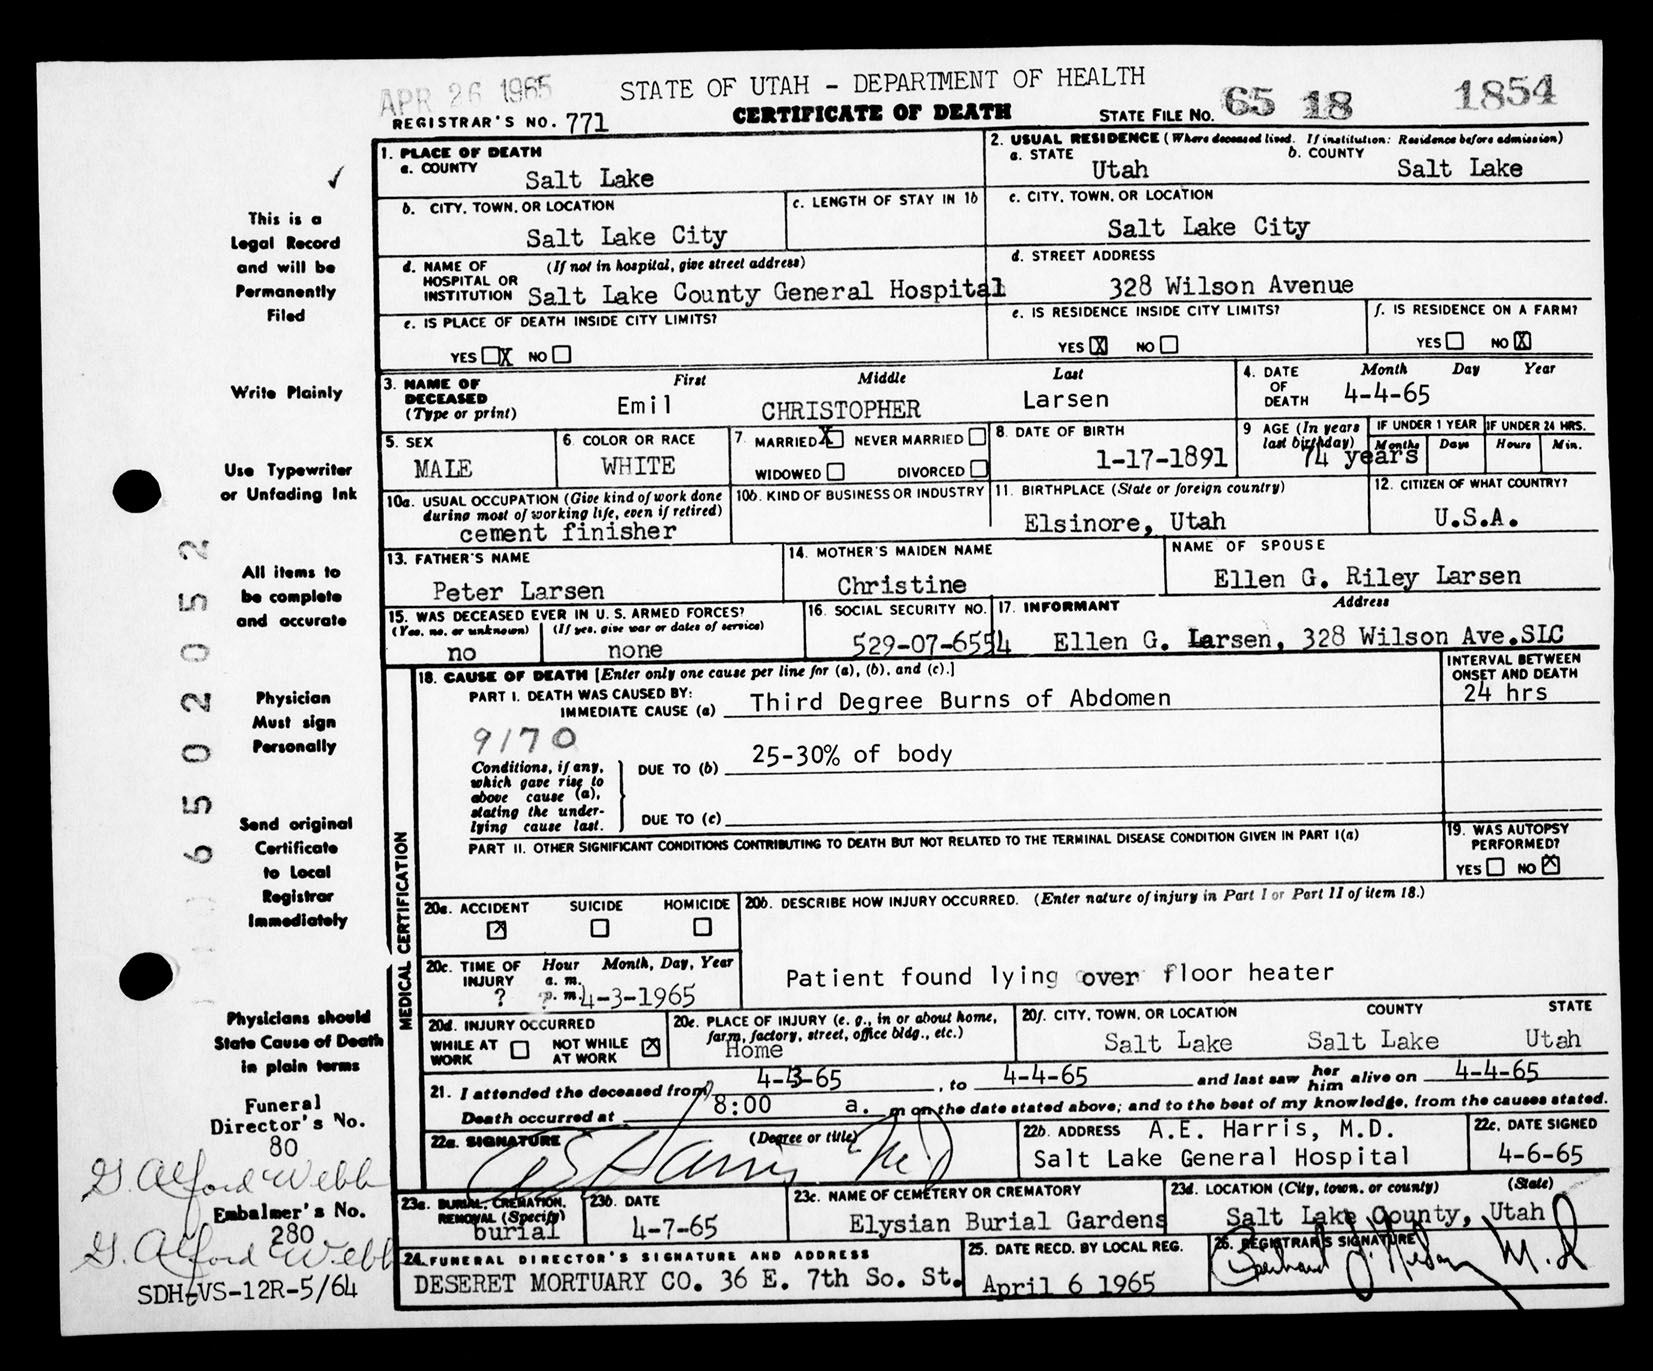 APR 26 1965
STATE OF UTAH - DEPARTMENT OF HEALTH
CERTIFICATE OF DEATH
REGISTRAR'S NO. 771
STATE FILE NO. 65 18 1854
This is a
Legal Record
and will be
Permanently
Filed
Write Plainly
Use Typewriter
or Unfading Ink
All items to
be complete
and accurate
Physician
Must sign
Personally
Send original
Certificate
to Local
Registrar
Immediately
Physicians should
State Cause of Death
in plain terms
Funeral
Director's No.
80
G. Alford Webb
Embalmer's No.
280
G. Alford Webb
SDH-VS-12R-5/64
6 5 0 2 0 5 2
1. PLACE OF DEATH
a. COUNTY
Salt Lake
2. USUAL RESIDENCE (Where deceased lived. If institution: Residence before admission)
a. STATE Utah b. COUNTY Salt Lake
b. CITY, TOWN, OR LOCATION
Salt Lake City
c. LENGTH OF STAY IN 1b
c. CITY, TOWN, OR LOCATION
Salt Lake City
d. NAME OF HOSPITAL OR INSTITUTION (If not in hospital, give street address)
Salt Lake County General Hospital
d. STREET ADDRESS
328 Wilson Avenue
e. IS PLACE OF DEATH INSIDE CITY LIMITS?
YES X NO
e. IS RESIDENCE INSIDE CITY LIMITS?
YES X NO
f. IS RESIDENCE ON A FARM?
YES NO X
3. NAME OF DECEASED (Type or print)
First Middle Last
Emil CHRISTOPHER Larsen
4. DATE OF DEATH Month Day Year
4-4-65
5. SEX
MALE
6. COLOR OR RACE
WHITE
7. MARRIED X NEVER MARRIED
WIDOWED DIVORCED
8. DATE OF BIRTH
1-17-1891
9 AGE (In years last birthday)
74 years
IF UNDER 1 YEAR IF UNDER 24 HRS.
Months Days Hours Min.
10a. USUAL OCCUPATION (Give kind of work done during most of working life, even if retired)
cement finisher
10b. KIND OF BUSINESS OR INDUSTRY
11. BIRTHPLACE (State or foreign country)
Elsinore, Utah
12. CITIZEN OF WHAT COUNTRY?
U.S.A.
13. FATHER'S NAME
Peter Larsen
14. MOTHER'S MAIDEN NAME
Christine
NAME OF SPOUSE
Ellen G. Riley Larsen
15. WAS DECEASED EVER IN U. S. ARMED FORCES?
(Yes, no, or unknown) (If yes, give war or dates of service)
no none
16. SOCIAL SECURITY NO.
529-07-6554
17. INFORMANT Address
Ellen G. Larsen, 328 Wilson Ave.SLC
MEDICAL CERTIFICATION
18. CAUSE OF DEATH [Enter only one cause per line for (a), (b), and (c).]
INTERVAL BETWEEN ONSET AND DEATH
PART I. DEATH WAS CAUSED BY:
IMMEDIATE CAUSE (a) Third Degree Burns of Abdomen 24 hrs
9170
Conditions, if any, which gave rise to above cause (a), stating the underlying cause last.
DUE TO (b) 25-30% of body
DUE TO (c)
PART II. OTHER SIGNIFICANT CONDITIONS CONTRIBUTING TO DEATH BUT NOT RELATED TO THE TERMINAL DISEASE CONDITION GIVEN IN PART I(a)
19. WAS AUTOPSY PERFORMED?
YES NO X
20a. ACCIDENT SUICIDE HOMICIDE
X
20b. DESCRIBE HOW INJURY OCCURRED. (Enter nature of injury in Part I or Part II of item 18.)
Patient found lying over floor heater
20c. TIME OF INJURY Hour Month, Day, Year
a. m.
? ?p. m. 4-3-1965
20d. INJURY OCCURRED
WHILE AT WORK NOT WHILE AT WORK X
20e. PLACE OF INJURY (e. g., in or about home, farm, factory, street, office bldg., etc.)
Home
20f. CITY, TOWN, OR LOCATION COUNTY STATE
Salt Lake Salt Lake Utah
21. I attended the deceased from 4-3-65, to 4-4-65 and last saw her him alive on 4-4-65
Death occurred at 8:00 a. m on the date stated above; and to the best of my knowledge, from the causes stated.
22a. SIGNATURE (Degree or title)
AE Harris MD
22b. ADDRESS A.E. Harris, M.D.
Salt Lake General Hospital
22c. DATE SIGNED
4-6-65
23a. BURIAL, CREMATION, REMOVAL (Specify)
burial
23b. DATE
4-7-65
23c. NAME OF CEMETERY OR CREMATORY
Elysian Burial Gardens
23d. LOCATION (City, town, or county) (State)
Salt Lake County, Utah
24. FUNERAL DIRECTOR'S SIGNATURE AND ADDRESS
DESERET MORTUARY CO. 36 E. 7th So. St.
25. DATE RECD. BY LOCAL REG.
April 6 1965
26. REGISTRAR'S SIGNATURE
M.D